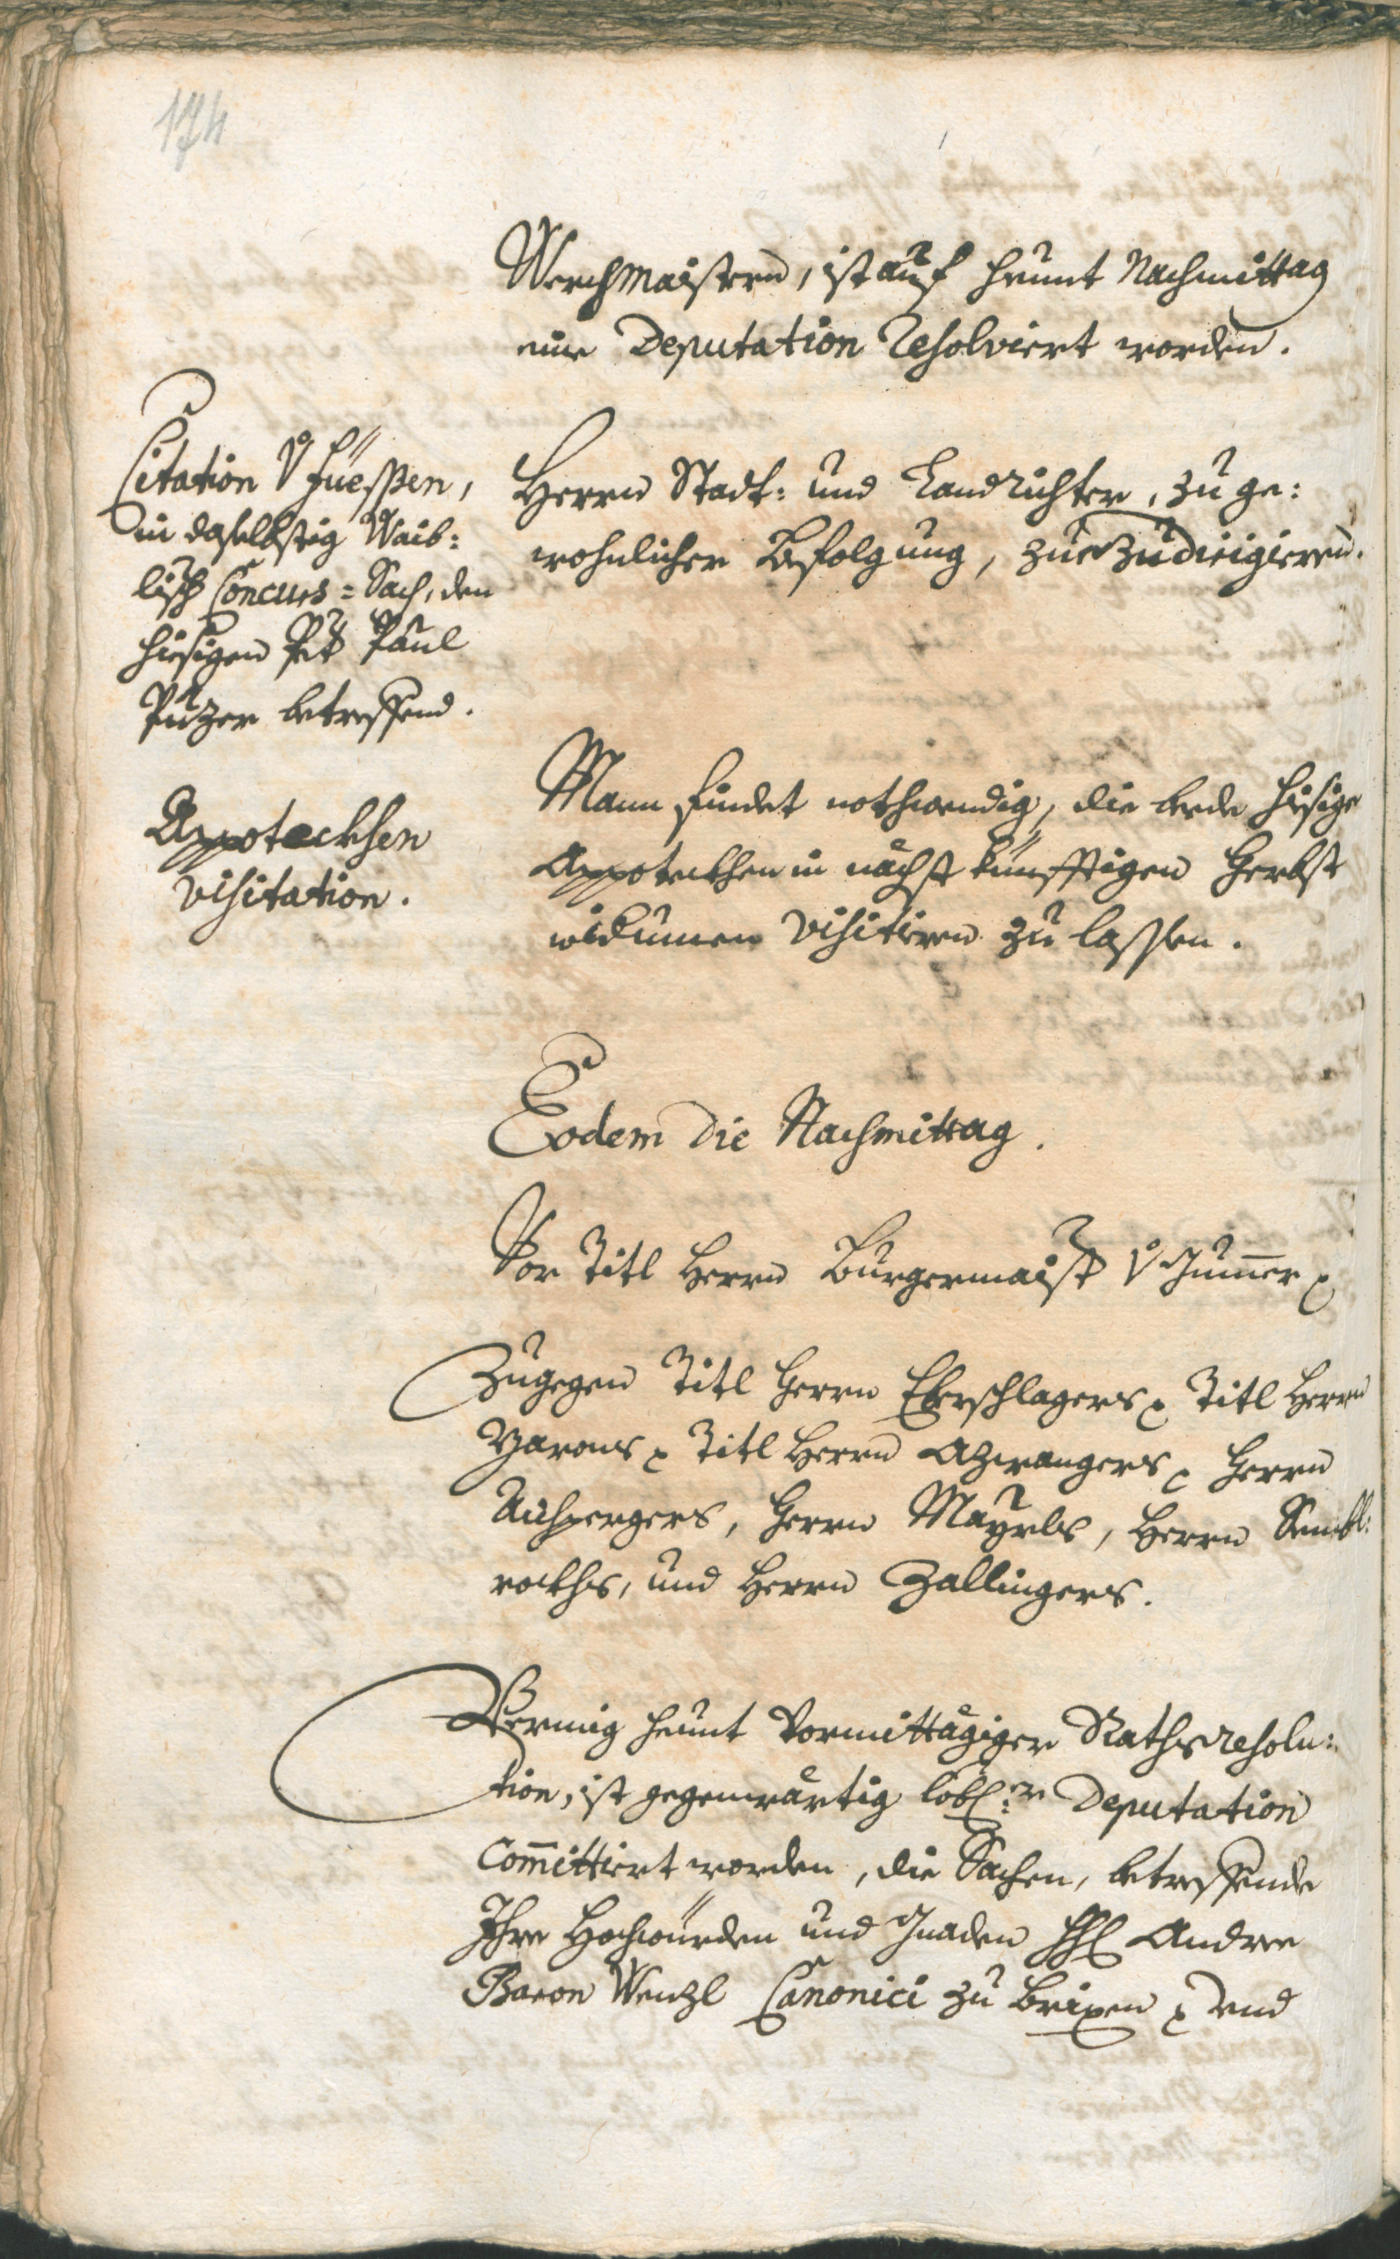 174
Werchmaistern, ist auf heunt Nachmittag
eine Deputation resolviert worden.
Citation v: Füessen,
in daselbstig Waib:
lisch Concurs=Sach, den
hiesigen Pet: Paul
Puzer betreffend.
Herrn Stadt: und Landrichter, zu ge:
wohnlicher Befolgung, zuezudirigieren.
Appoteckhen
visitation.
Mann findet nothwendig, die beede hiesige
Appoteckhen in nächst künfftigen Herbst
widumen visitiren zu lassen.
Eodem die Nachmittag.
Vor Titl Herrn Burgermaist: v: Gumer
Zugegen Titl Herrn Eberschlagers Titl Herrn
Titl Herrn Azwangers Herrn
Aichpergers, Herrn Mayrls, Herrn
und Herrn Zallingers.
Vermig heunt Vormittägiger Rathsresolu:
tion, ist gegenwärtig löbl:er Deputation
Committiert worden, die Sachen, betreffende
Ihro Hochwürden und Gnaden Andree
Baron Wenzl Canonici zu Brixen und